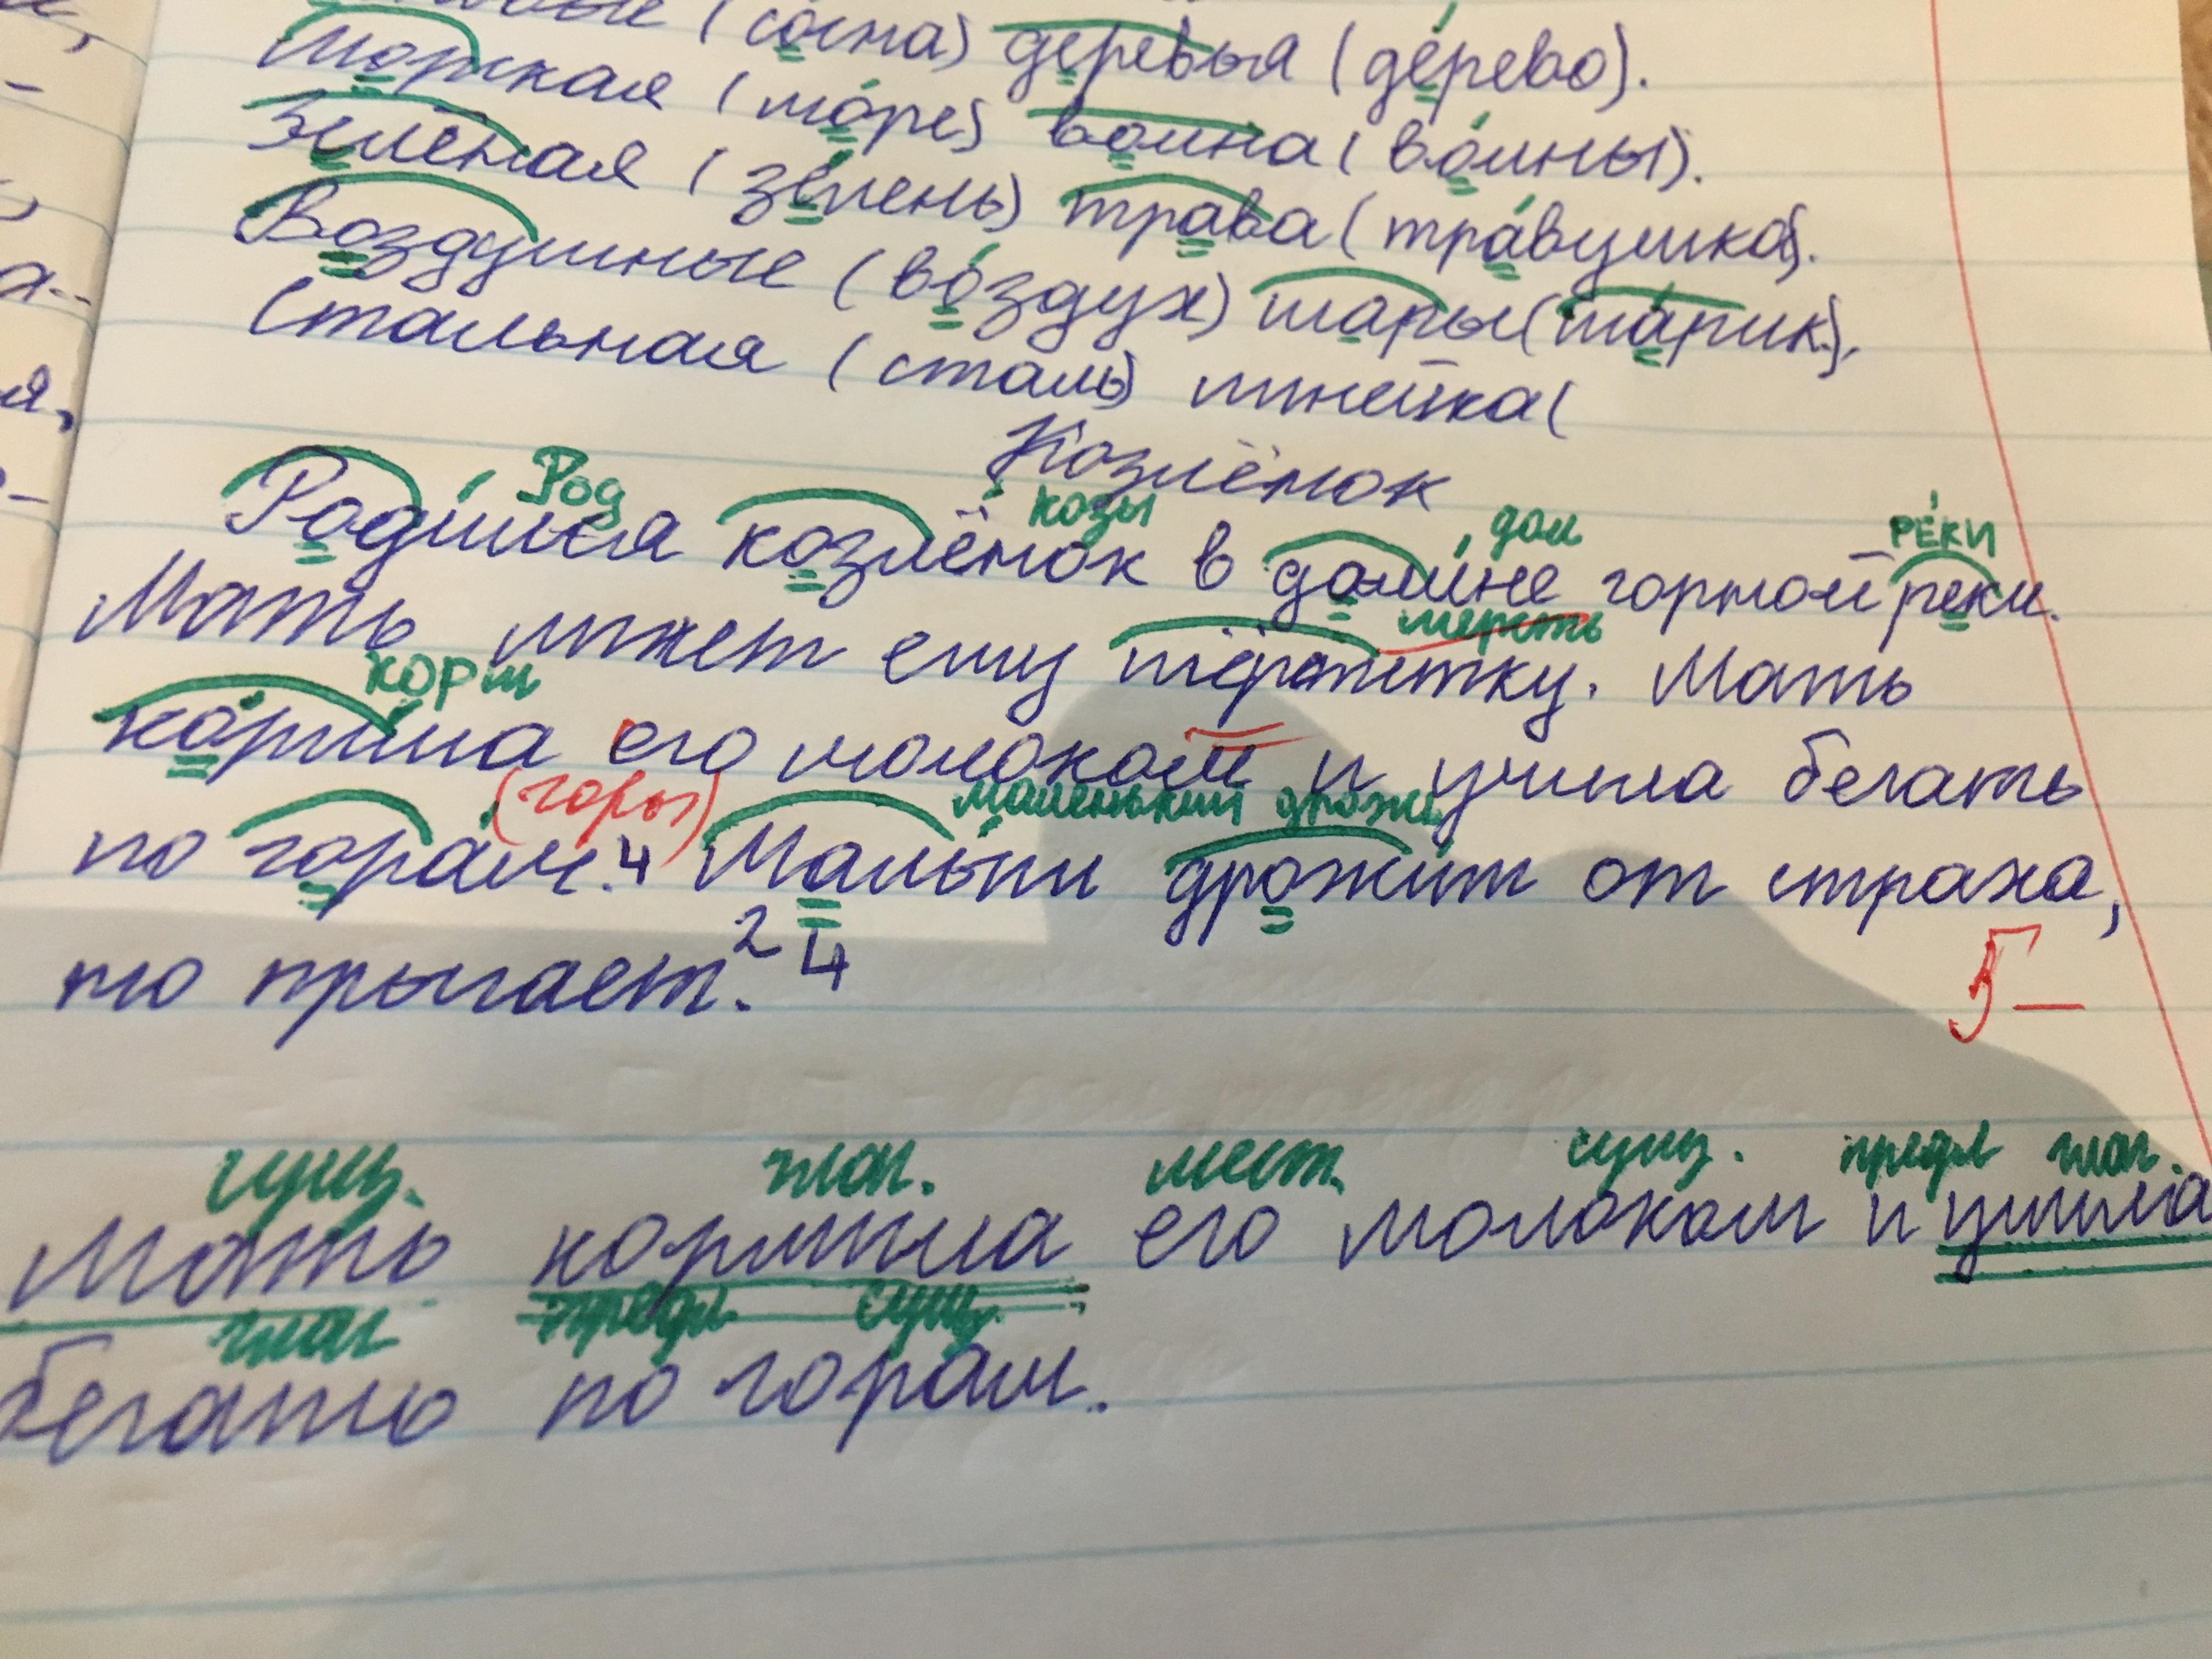 (сосна) деревья (дерево).
Морская (море) волна (волны).
Зелёная (зелень) трава (травушка).
Воздушные (воздух) шары (шарик).
Стальная (сталь) линейка (
Козлёнок
Род козы дом РЕ́КИ
Родился козлёнок в долине горной реки.
шерсть
Мать лижет ему шёрстку. Мать
корм
кормила его молоком и учила бегать
(горы) маленький дрожь
по горам. 4 Малыш дрожит от страха,
но прыгает. 2 4
5-
сущ. глаг. мест. сущ. предл глаг.
Мать кормила его молоком и учила
глаг предл сущ.
бегать по горам.